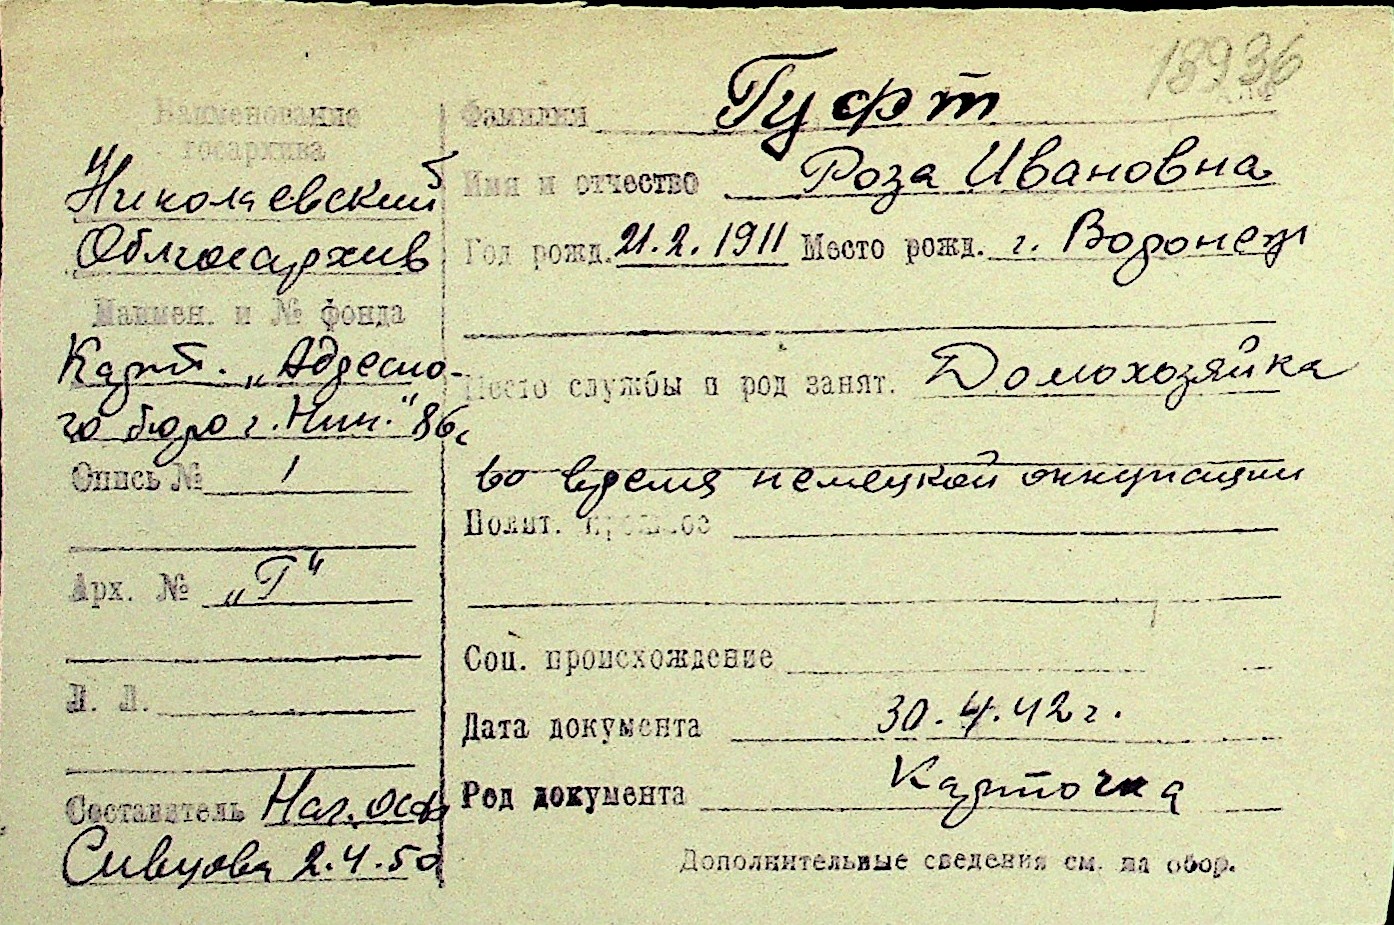 18936
Наименование
госархива
Николаевский
Облгосархив
Наимен. и № фонда
Карт. „Адресно-
го бюро г. Ник." 86
Опись № 1
Арх. № „Г"
Л. Л.
Составитель Нач. осф
Сивцова 2.4.50
Фамилия Гуфт
Имя и отчество Роза Ивановна
Год рожд. 21.2.1911 Место рожд. г. Воронеж
Место службы и род занят. Домохозяйка
во время немецкой оккупации
Полит. прошлое
Соц. происхождение
Дата документа 30.4.42 г.
Род документа Карточка
Дополнительные сведения см. на обор.